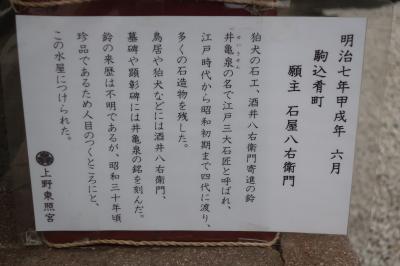 明治七年甲戌年 六月
駒込肴町
願主 石屋八右衛門
狛犬の石工、酒井八右衛門寄進の鈴
井亀泉の名で江戸三大石匠と呼ばれ、
せいきせん
江戸時代から昭和初期まで四代に渡り、
多くの石造物を残した。
鳥居や狛犬などには酒井八右衛門、
墓碑や顕彰碑には井亀泉の銘を刻んだ。
鈴の来歴は不明であるが、昭和三十年頃
珍品であるため人目のつくところにと、
この水屋につけられた。
上野東照宮